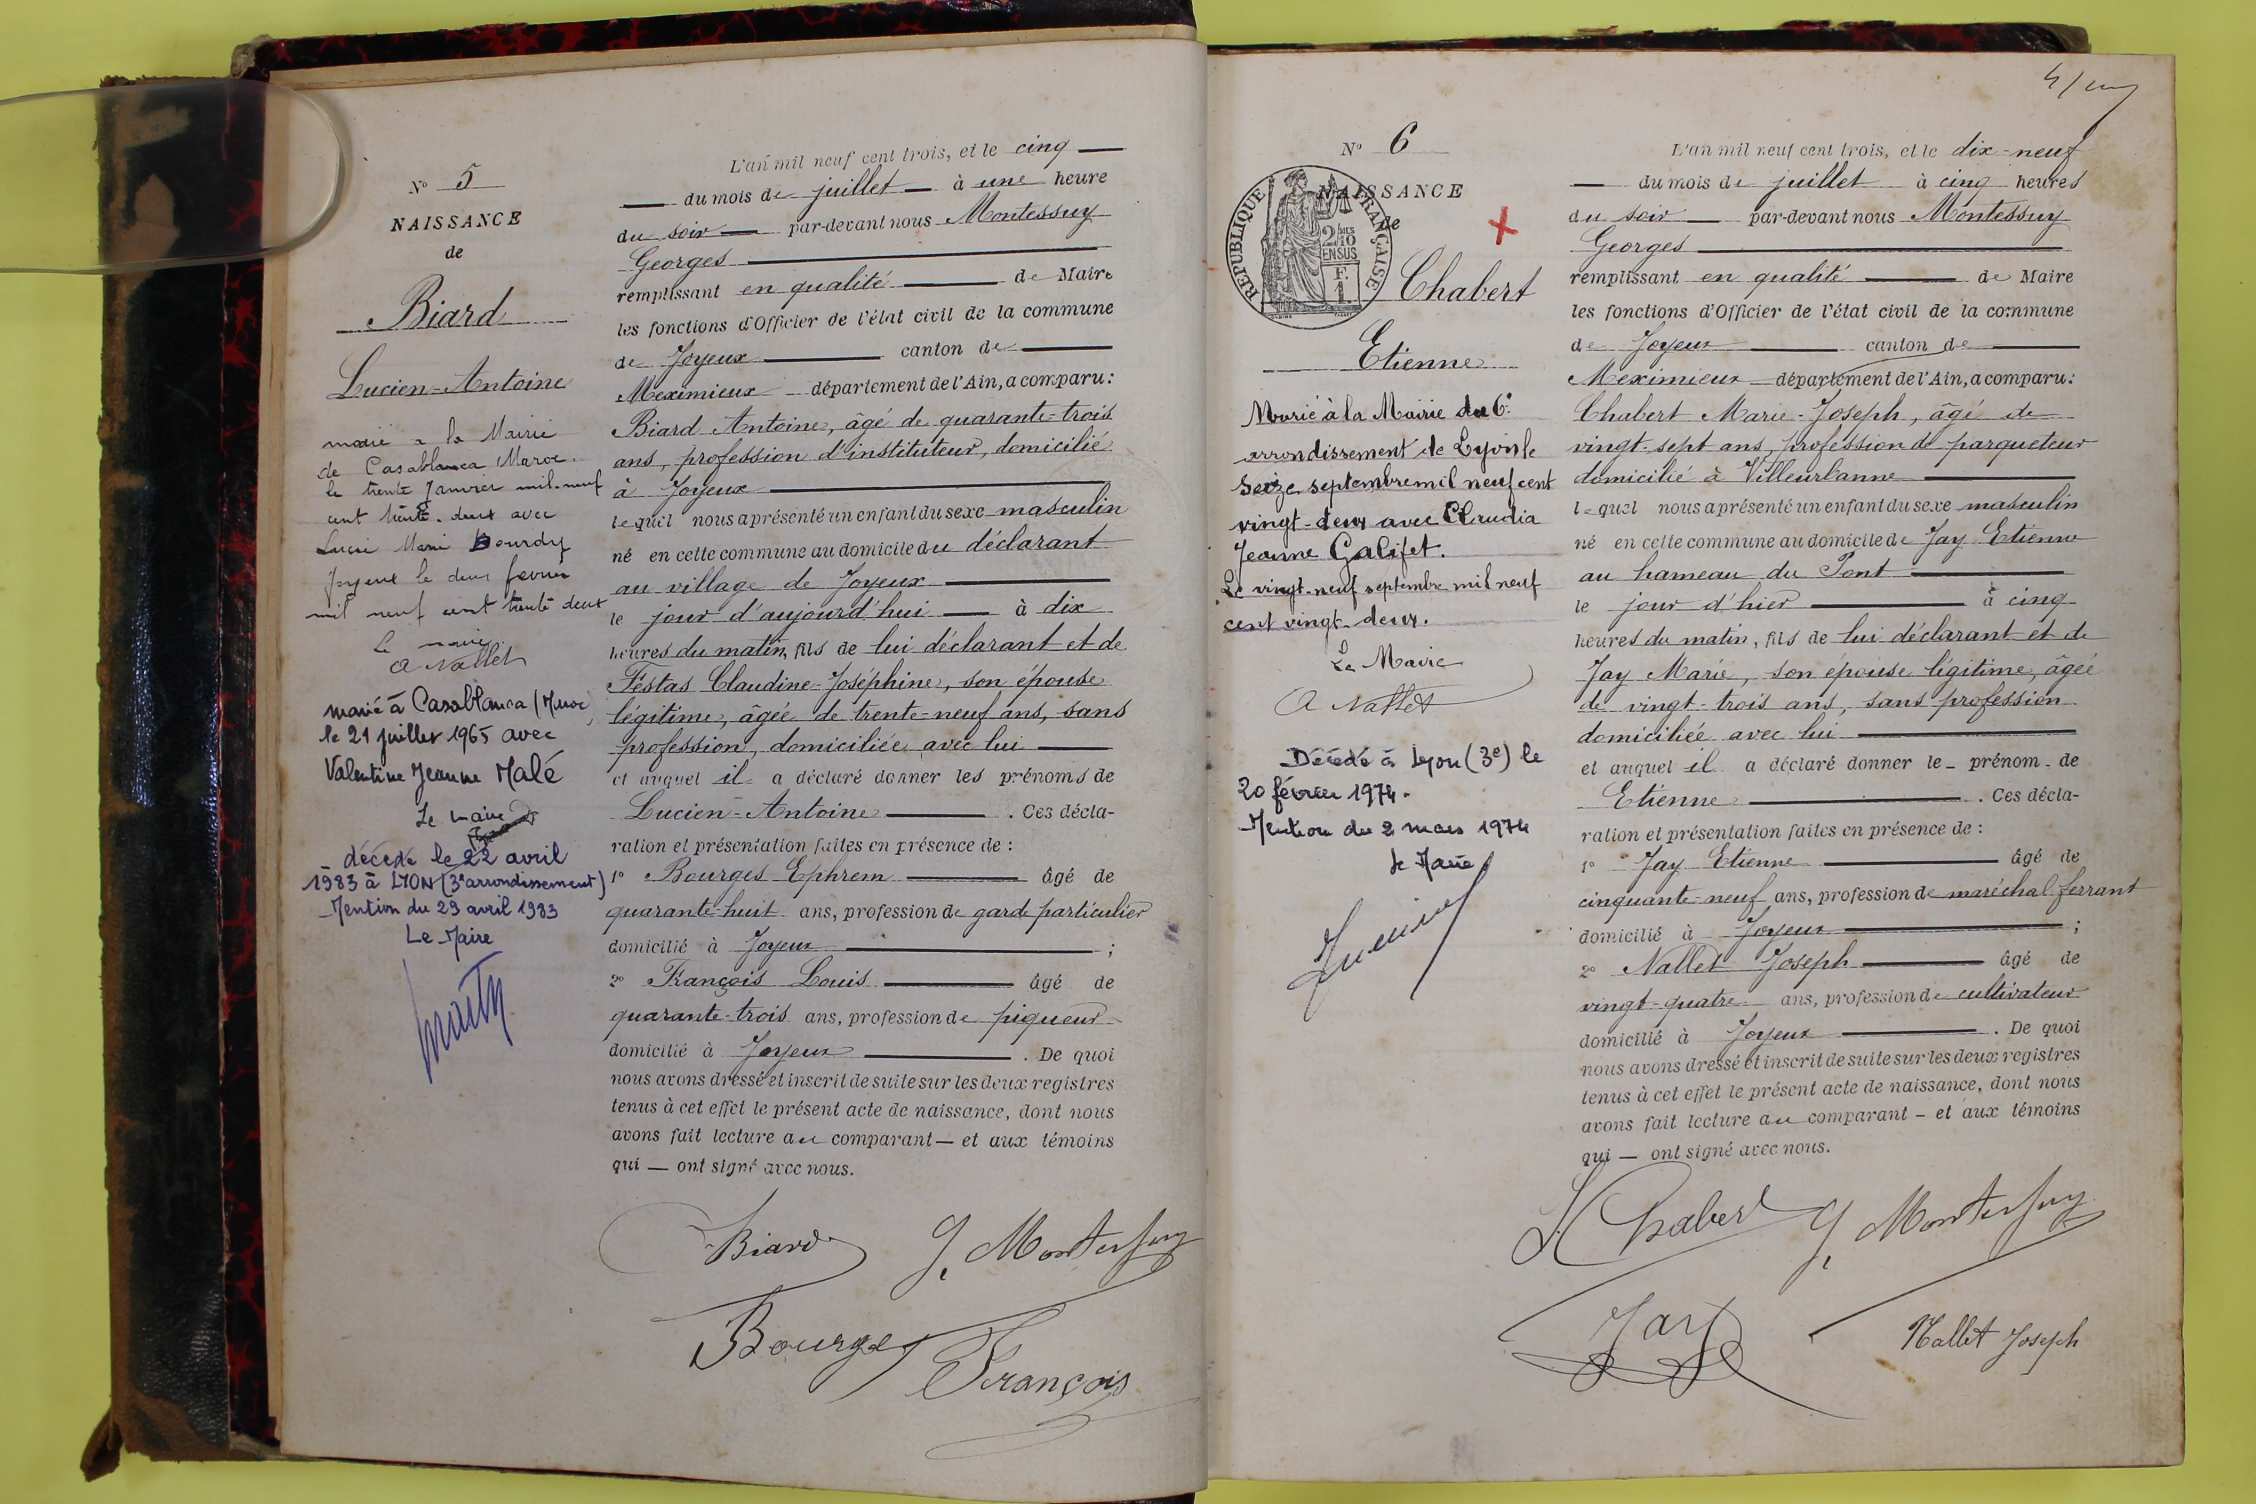 N° 5
NAISSANCE
de
Biard
Lucien-Antoine
marié a la Mairie
de Casablanca Maroc
le trente Janvier mil-neuf
cent trente-deux avec
Lucie Marie Bourdy
Joyeux le deux fevrier
mil neuf cent trente deux
Le maire
A Nallet
marié à Casablanca (Maroc)
le 21 juillet 1965 avec
Valentine Jeanne Malé
Le maire
décédé le 22 avril
1983 à LYON (3e arrondissement)
Mention du 29 avril 1983
Le Maire
L'an mil neuf cent trois, et le cinq
du mois de juillet à une heure
du soir par-devant nous Montessuy
Georges
remplissant en qualité de Maire
les fonctions d'Officier de l'état civil de la commune
de Joyeux canton de
Meximieux département de l'Ain, a comparu:
Biard Antoine, âgé de quarante-trois
ans, profession d'instituteur, domicilié
à Joyeux
lequel nous a présenté un enfant du sexe masculin
né en cette commune au domicile du déclarant
au village de Joyeux
le jour d'aujourd'hui à dix
heures du matin, fils de lui déclarant et de
Festas Claudine-Joséphine, son épouse
légitime, âgée de trente-neuf ans, sans
profession, domiciliée avec lui
et auquel il a déclaré donner les prénoms de
Lucien-Antoine . Ces décla-
ration et présentation faites en présence de :
1° Bourges Ephrem âgé de
quarante-huit ans, profession de garde particulier
domicilié à Joyeux ;
2° François Louis âgé de
quarante-trois ans, profession de piqueur
domicilié à Joyeux . De quoi
nous avons dressé et inscrit de suite sur les deux registres
tenus à cet effet le présent acte de naissance, dont nous
avons fait lecture au comparant — et aux témoins
qui — ont signé avec nous.
Biard G. Montessuy
Bourges François
N° 6
NAISSANCE
de
RÉPUBLIQUE FRANÇAISE
2/10
EN SUS
F.
1
Chabert
Etienne
Marié à la Mairie du 6e
arrondissement de Lyon le
seize septembre mil neuf cent
vingt-deux avec Claudia
Jeanne Galifet.
Le vingt-neuf septembre mil neuf
cent vingt-deux.
Le Maire
A Nallet
Décédé à Lyon (3e) le
20 février 1974.
Mention du 2 mars 1974
Le Maire
L'an mil neuf cent trois, et le dix-neuf
du mois de juillet à cinq heures
du soir par-devant nous Montessuy
Georges
remplissant en qualité de Maire
les fonctions d'Officier de l'état civil de la commune
de Joyeux canton de
Meximieux département de l'Ain, a comparu:
Chabert Marie-Joseph, âgé de
vingt-sept ans, profession de parqueteur
domicilié à Villeurbanne
lequel nous a présenté un enfant du sexe masculin
né en cette commune au domicile de Jay Etienne
au hameau du Pont
le jour d'hier à cinq
heures du matin, fils de lui déclarant et de
Jay Marie, son épouse légitime, âgée
de vingt-trois ans, sans profession
domiciliée avec lui
et auquel il a déclaré donner le prénom de
Etienne . Ces décla-
ration et présentation faites en présence de :
1° Jay Etienne âgé de
cinquante-neuf ans, profession de maréchal ferrant
domicilié à Joyeux ;
2° Nallet Joseph âgé de
vingt-quatre ans, profession de cultivateur
domicilié à Joyeux . De quoi
nous avons dressé et inscrit de suite sur les deux registres
tenus à cet effet le présent acte de naissance, dont nous
avons fait lecture au comparant — et aux témoins
qui — ont signé avec nous.
Chabert G. Montessuy
Jay Nallet Joseph